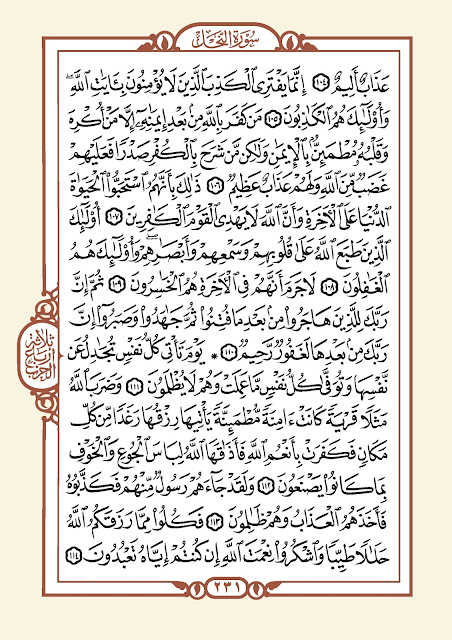 سُورَةُ النَّحْلِ
عَذَابٌ أَلِيمٌ ١٠٤ إِنَّمَا يَفْتَرِى ٱلْكَذِبَ ٱلَّذِينَ لَا يُؤْمِنُونَ بِـَٔايَٰتِ ٱللَّهِۖ
وَأُوْلَٰٓئِكَ هُمُ ٱلْكَٰذِبُونَ ١٠٥ مَن كَفَرَ بِٱللَّهِ مِنۢ بَعْدِ إِيمَٰنِهِۦٓ إِلَّا مَنْ أُكْرِهَ
وَقَلْبُهُۥ مُطْمَئِنٌّۢ بِٱلْإِيمَٰنِ وَلَٰكِن مَّن شَرَحَ بِٱلْكُفْرِ صَدْرًا فَعَلَيْهِمْ
غَضَبٌ مِّنَ ٱللَّهِ وَلَهُمْ عَذَابٌ عَظِيمٌ ١٠٦ ذَٰلِكَ بِأَنَّهُمُ ٱسْتَحَبُّوا۟ ٱلْحَيَوٰةَ
ٱلدُّنْيَا عَلَى ٱلْأَخِرَةِ وَأَنَّ ٱللَّهَ لَا يَهْدِى ٱلْقَوْمَ ٱلْكَٰفِرِينَ ١٠٧ أُوْلَٰٓئِكَ
ٱلَّذِينَ طَبَعَ ٱللَّهُ عَلَىٰ قُلُوبِهِمْ وَسَمْعِهِمْ وَأَبْصَٰرِهِمْۖ وَأُوْلَٰٓئِكَ هُمُ
ٱلْغَٰفِلُونَ ١٠٨ لَا جَرَمَ أَنَّهُمْ فِى ٱلْأَخِرَةِ هُمُ ٱلْخَٰسِرُونَ ١٠٩ ثُمَّ إِنَّ
رَبَّكَ لِلَّذِينَ هَاجَرُوا۟ مِنۢ بَعْدِ مَا فُتِنُوا۟ ثُمَّ جَٰهَدُوا۟ وَصَبَرُوٓا۟ إِنَّ
رَبَّكَ مِنۢ بَعْدِهَا لَغَفُورٌ رَّحِيمٌ ١١٠ ۞ يَوْمَ تَأْتِى كُلُّ نَفْسٍ تُجَٰدِلُ عَن
ثلاثة أرباع الحزب
نَّفْسِهَا وَتُوَفَّىٰ كُلُّ نَفْسٍ مَّا عَمِلَتْ وَهُمْ لَا يُظْلَمُونَ ١١١ وَضَرَبَ ٱللَّهُ
مَثَلًا قَرْيَةً كَانَتْ ءَامِنَةً مُّطْمَئِنَّةً يَأْتِيهَا رِزْقُهَا رَغَدًا مِّن كُلِّ
مَكَانٍ فَكَفَرَتْ بِأَنْعُمِ ٱللَّهِ فَأَذَٰقَهَا ٱللَّهُ لِبَاسَ ٱلْجُوعِ وَٱلْخَوْفِ
بِمَا كَانُوا۟ يَصْنَعُونَ ١١٢ وَلَقَدْ جَآءَهُمْ رَسُولٌ مِّنْهُمْ فَكَذَّبُوهُ
فَأَخَذَهُمُ ٱلْعَذَابُ وَهُمْ ظَٰلِمُونَ ١١٣ فَكُلُوا۟ مِمَّا رَزَقَكُمُ ٱللَّهُ
حَلَٰلًا طَيِّبًا وَٱشْكُرُوا۟ نِعْمَتَ ٱللَّهِ إِن كُنتُمْ إِيَّاهُ تَعْبُدُونَ ١١٤
٢٣١